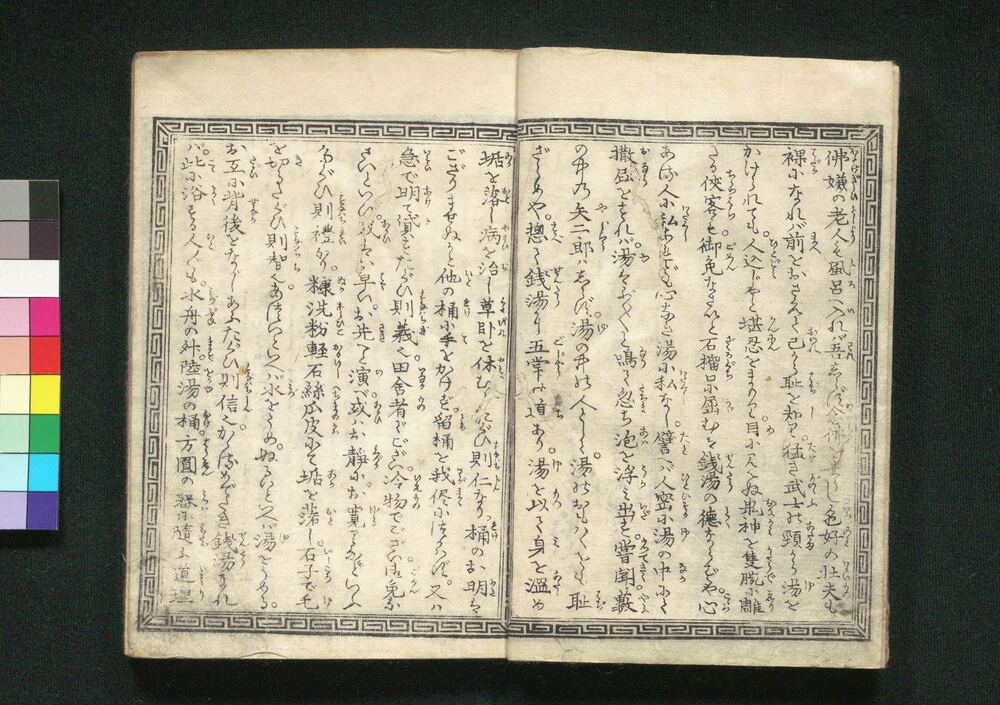 佛嫌の老人も風呂へ入れバ吾しらず念佛申し色好の壮夫も
裸になれバ前をおさえて己から耻を知り。猛き武士の頸から湯を
かけられても。人込じやと堪忍をまもり目に見へぬ鬼神を隻腕に雕
たる侠客も御免なさいと石榴口に屈むも銭湯の徳ならずや心
ある人に私あれども心なき湯に私なし譬へバ人密に湯の中にて
撒屁をすれバ湯ハぶく〳〵と鳴て忽ち泡を浮ミ出す。嘗聞藪
の中の矢二郎ハしらず。湯の中の人として湯のおもハくをも耻
ざらめや。惣て銭湯に五常の道あり湯を以て身を温め
垢を落し病を治し草卧を休むるたぐひ則仁なり。桶のお明ハ
ござりませぬかと他の桶に手をかけず留桶を我侭につかハず。又ハ
急で明て貸すたぐひ則義也田舎者でござい冷物でござい御免な
さいといひ或ハお早いお先へと演べ或ハお静にお寛りなどいふ
たぐひ則禮なり。糠洗粉軽石絲瓜皮にて垢を落し石子で毛
を切るたぐひ則智なり。あついといへバ水をうめ。ぬるいといへバ湯をうめる。
お互に背後をながしあふたぐひ則信なりかゝるめでたき銭湯なれ
バ。此に浴する人人も。水舟の升陸湯の桶。方圓の器に随ふ道理